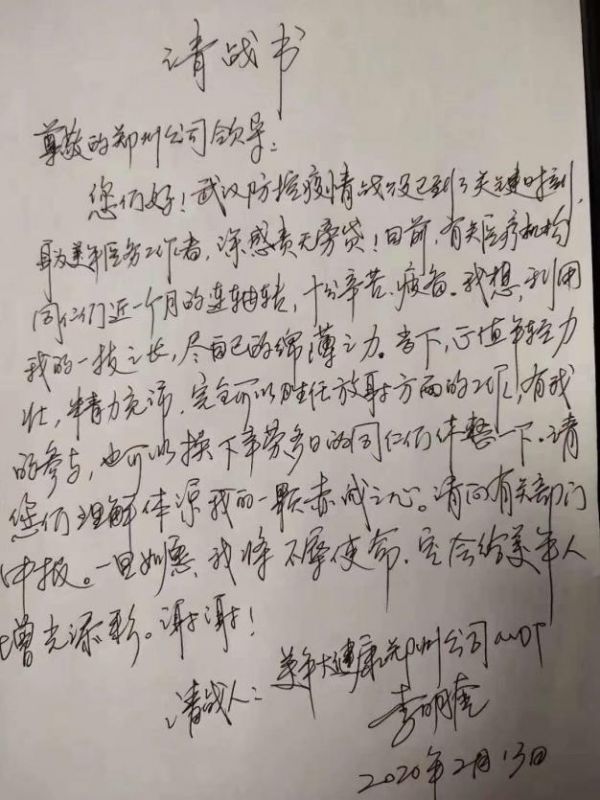 请战书
尊敬的郑州公司领导：
您们好！武汉防控疫情战役已到了关键时刻，
身为美年医务工作者，深感责无旁贷！目前，有关医疗机构
同仁们近一个月的连轴转，十分辛苦、疲惫。我想，利用
我的一技之长，尽自己的绵薄之力。当下，正值年轻力
壮，精力充沛，完全可以胜任放射方面的工作，有我
的参与，也可以换下辛劳多日的同仁们休整一下。请
您们理解体谅我的一颗赤诚之心。请向有关部门
申报。一旦如愿，我将不辱使命，定会给美年人
增光添彩。谢谢！
请战人：美年大健康郑州公司
李明奎
2020年2月13日